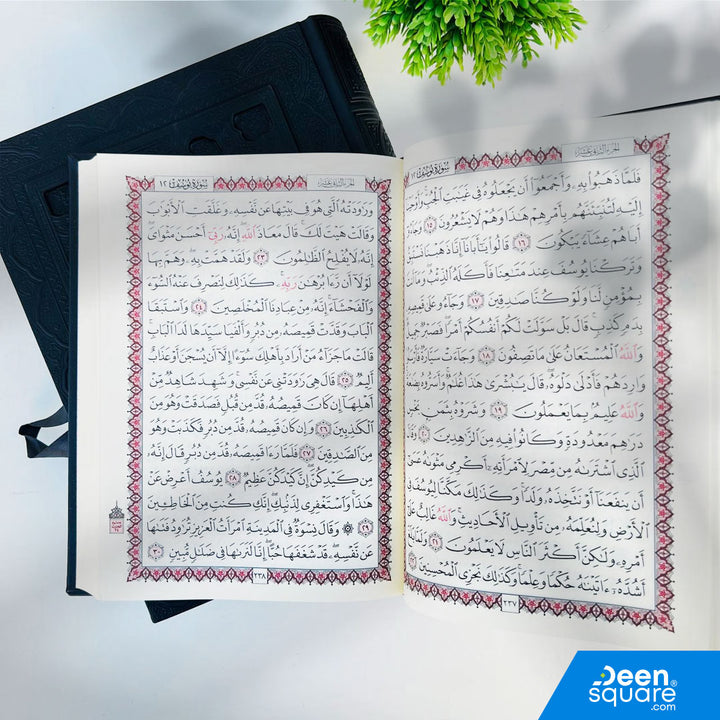 سُورَةُ يُوسُفَ ١٢
الجزء الثاني عشر
فَلَمَّا ذَهَبُوا۟ بِهِۦ وَأَجْمَعُوٓا۟ أَن يَجْعَلُوهُ فِى غَيَـٰبَتِ ٱلْجُبِّ وَأَوْحَيْنَآ
إِلَيْهِ لَتُنَبِّئَنَّهُم بِأَمْرِهِمْ هَـٰذَا وَهُمْ لَا يَشْعُرُونَ ١٥ وَجَآءُوٓ
أَبَاهُمْ عِشَآءً يَبْكُونَ ١٦ قَالُوا۟ يَـٰٓأَبَانَآ إِنَّا ذَهَبْنَا نَسْتَبِقُ
وَتَرَكْنَا يُوسُفَ عِندَ مَتَـٰعِنَا فَأَكَلَهُ ٱلذِّئْبُ وَمَآ أَنتَ
بِمُؤْمِنٍ لَّنَا وَلَوْ كُنَّا صَـٰدِقِينَ ١٧ وَجَآءُو عَلَىٰ قَمِيصِهِۦ
بِدَمٍ كَذِبٍ قَالَ بَلْ سَوَّلَتْ لَكُمْ أَنفُسُكُمْ أَمْرًا فَصَبْرٌ جَمِيلٌ
وَٱللَّهُ ٱلْمُسْتَعَانُ عَلَىٰ مَا تَصِفُونَ ١٨ وَجَآءَتْ سَيَّارَةٌ فَأَرْسَلُوا۟
وَارِدَهُمْ فَأَدْلَىٰ دَلْوَهُۥ قَالَ يَـٰبُشْرَىٰ هَـٰذَا غُلَـٰمٌ وَأَسَرُّوهُ بِضَـٰعَةً
وَٱللَّهُ عَلِيمٌۢ بِمَا يَعْمَلُونَ ١٩ وَشَرَوْهُ بِثَمَنٍۭ بَخْسٍ
دَرَٰهِمَ مَعْدُودَةٍ وَكَانُوا۟ فِيهِ مِنَ ٱلزَّٰهِدِينَ ٢٠ وَقَالَ
ٱلَّذِى ٱشْتَرَىٰهُ مِن مِّصْرَ لِٱمْرَأَتِهِۦٓ أَكْرِمِى مَثْوَىٰهُ عَسَىٰٓ
أَن يَنفَعَنَآ أَوْ نَتَّخِذَهُۥ وَلَدًا وَكَذَٰلِكَ مَكَّنَّا لِيُوسُفَ فِى
ٱلْأَرْضِ وَلِنُعَلِّمَهُۥ مِن تَأْوِيلِ ٱلْأَحَادِيثِ وَٱللَّهُ غَالِبٌ عَلَىٰٓ
أَمْرِهِۦ وَلَـٰكِنَّ أَكْثَرَ ٱلنَّاسِ لَا يَعْلَمُونَ ٢١ وَلَمَّا بَلَغَ
أَشُدَّهُۥٓ ءَاتَيْنَـٰهُ حُكْمًا وَعِلْمًا وَكَذَٰلِكَ نَجْزِى ٱلْمُحْسِنِينَ ٢٢
٢٣٧
سُورَةُ يُوسُفَ ١٢
الجزء الثاني عشر
وَرَٰوَدَتْهُ ٱلَّتِى هُوَ فِى بَيْتِهَا عَن نَّفْسِهِۦ وَغَلَّقَتِ ٱلْأَبْوَٰبَ
وَقَالَتْ هَيْتَ لَكَ قَالَ مَعَاذَ ٱللَّهِ إِنَّهُۥ رَبِّىٓ أَحْسَنَ مَثْوَاىَ
إِنَّهُۥ لَا يُفْلِحُ ٱلظَّـٰلِمُونَ ٢٣ وَلَقَدْ هَمَّتْ بِهِۦ وَهَمَّ بِهَا
لَوْلَآ أَن رَّءَا بُرْهَـٰنَ رَبِّهِۦ كَذَٰلِكَ لِنَصْرِفَ عَنْهُ ٱلسُّوٓءَ
وَٱلْفَحْشَآءَ إِنَّهُۥ مِنْ عِبَادِنَا ٱلْمُخْلَصِينَ ٢٤ وَٱسْتَبَقَا
ٱلْبَابَ وَقَدَّتْ قَمِيصَهُۥ مِن دُبُرٍ وَأَلْفَيَا سَيِّدَهَا لَدَا ٱلْبَابِ
قَالَتْ مَا جَزَآءُ مَنْ أَرَادَ بِأَهْلِكَ سُوٓءًا إِلَّآ أَن يُسْجَنَ أَوْ عَذَابٌ
أَلِيمٌ ٢٥ قَالَ هِىَ رَٰوَدَتْنِى عَن نَّفْسِى وَشَهِدَ شَاهِدٌ مِّنْ
أَهْلِهَآ إِن كَانَ قَمِيصُهُۥ قُدَّ مِن قُبُلٍ فَصَدَقَتْ وَهُوَ مِنَ
ٱلْكَـٰذِبِينَ ٢٦ وَإِن كَانَ قَمِيصُهُۥ قُدَّ مِن دُبُرٍ فَكَذَبَتْ وَهُوَ
مِنَ ٱلصَّـٰدِقِينَ ٢٧ فَلَمَّا رَءَا قَمِيصَهُۥ قُدَّ مِن دُبُرٍ قَالَ إِنَّهُۥ
مِن كَيْدِكُنَّ إِنَّ كَيْدَكُنَّ عَظِيمٌ ٢٨ يُوسُفُ أَعْرِضْ عَنْ
هَـٰذَا وَٱسْتَغْفِرِى لِذَنۢبِكِ إِنَّكِ كُنتِ مِنَ ٱلْخَاطِـِٔينَ
٢٩ ۞ وَقَالَ نِسْوَةٌ فِى ٱلْمَدِينَةِ ٱمْرَأَتُ ٱلْعَزِيزِ تُرَٰوِدُ فَتَىٰهَا
عَن نَّفْسِهِۦ قَدْ شَغَفَهَا حُبًّا إِنَّا لَنَرَىٰهَا فِى ضَلَـٰلٍ مُّبِينٍ ٣٠
٢٣٨
Deen
square®
.com